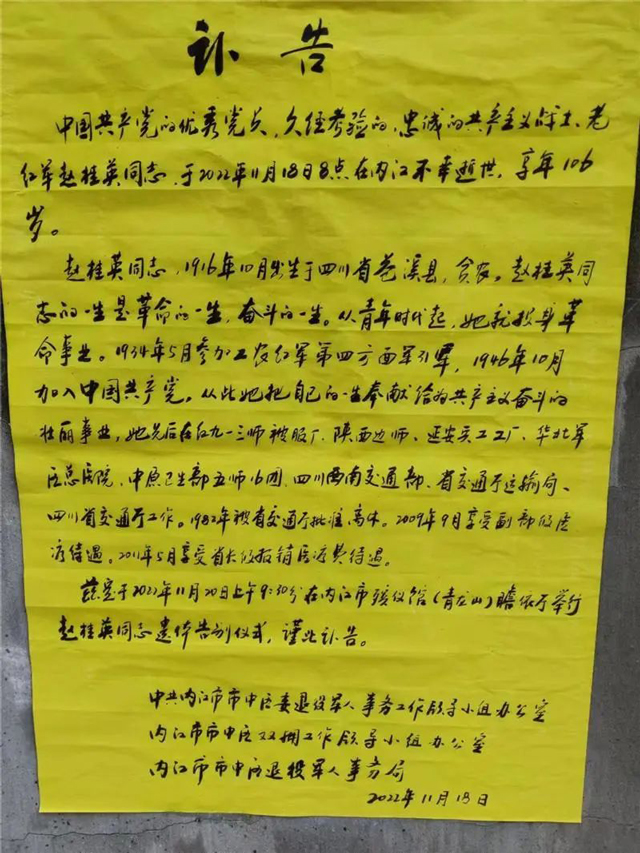 讣告
中国共产党的优秀党员、久经考验的、忠诚的共产主义战士、老
红军赵桂英同志,于2022年11月18日8点在内江不幸逝世,享年106
岁。
赵桂英同志,1916年10月出生于四川省苍溪县,贫农。赵桂英同
志的一生是革命的一生,奋斗的一生。从青年时代起,她就投身革
命事业。1934年5月参加工农红军第四方面军31军,1946年10月
加入中国共产党。从此她把自己的一生奉献给为共产主义奋斗的
壮丽事业,她先后在红九一三师被服厂、陕西边师、延安实工工厂、华北军
区总医院、中原卫生部五师16团、四川西南交通部、省交通厅运输局、
四川省交通厅工作。1982年被省交通厅批准离休。2009年9月享受副部级医
疗待遇。2011年5月享受省长级报销医疗费待遇。
兹定于2022年11月20日上午9:30分在内江市殡仪馆(青龙山)瞻依厅举行
赵桂英同志遗体告别仪式,谨此讣告。
中共内江市市中区委退役军人事务工作领导小组办公室
内江市市中区双拥工作领导小组办公室
内江市市中区退役军人事务局
2022年11月18日